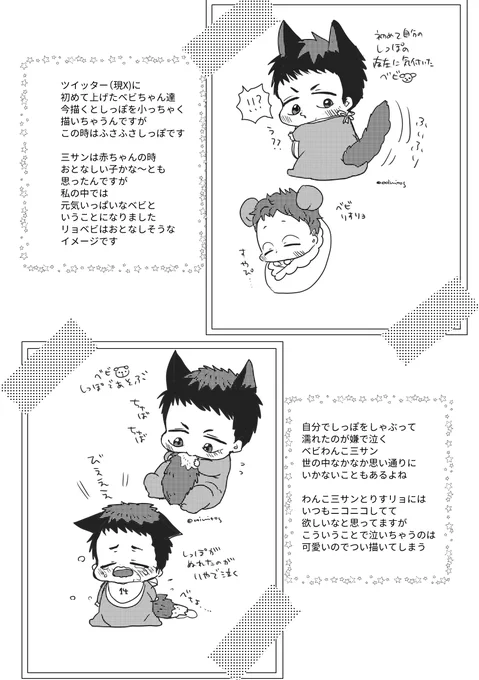 ツイッター(現X)に
初めて上げたベビちゃん達
今描くとしっぽを小っちゃく
描いちゃうんですが
この時はふさふさしっぽです
三サンは赤ちゃんの時
おとなしい子かな〜とも
思ったんですが
私の中では
元気いっぱいなベビと
いうことになりました
リョベビはおとなしそうな
イメージです
初めて自分の
しっぽの
存在に気付いた
ベビ
!!?
う??
ふり
ふり
ベビ
りすリョ
すやぴ…
ベビ
しっぽであそぶ
ちゅぱ
ちゅぱ
びえええ
しっぽが
ぬれたのが
いやで泣く
べちょ…
14
自分でしっぽをしゃぶって
濡れたのが嫌で泣く
ベビわんこ三サン
世の中なかなか思い通りに
いかないこともあるよね
わんこ三サンとりすリョには
いつもニコニコしてて
欲しいなと思ってますが
こういうことで泣いちゃうのは
可愛いのでつい描いてしまう